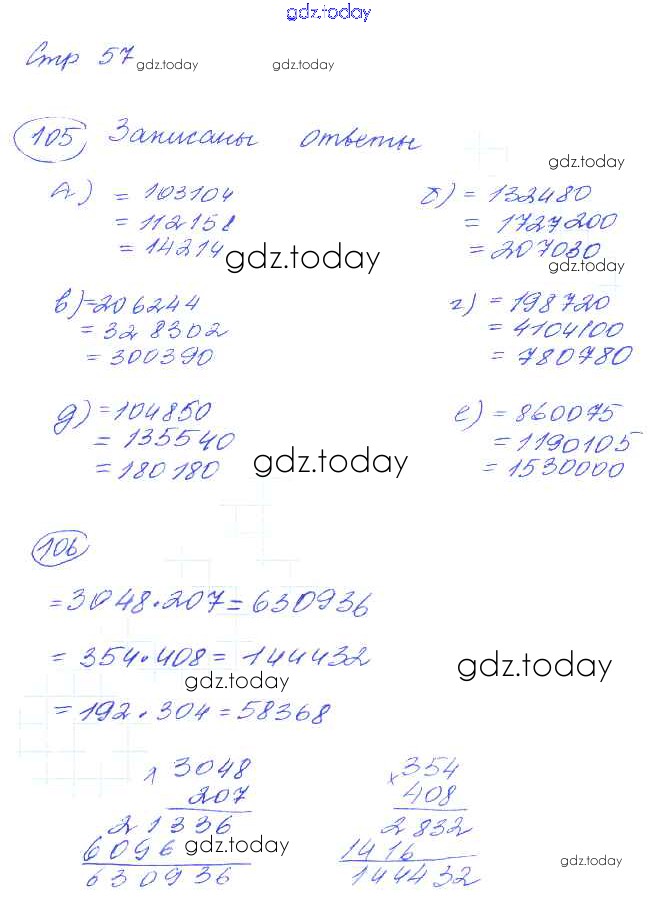 gdz.today
Стр 57
gdz.today gdz.today
105 Записаны ответы
gdz.today
а) = 103104 б) = 132480
= 112158 = 1727200
= 14214 = 207030
gdz.today gdz.today
в) = 206244 г) = 198720
= 328302 = 4104100
= 300390 = 780780
д) = 104850 е) = 860075
= 135540 = 1190105
= 180180 = 1530000
gdz.today
106
= 3048 · 207 = 630936
= 354 · 408 = 144432
gdz.today gdz.today
= 192 · 304 = 58368
× 3048 × 354
207 408
21336 2832
6096 1416
gdz.today gdz.today
630936 144432